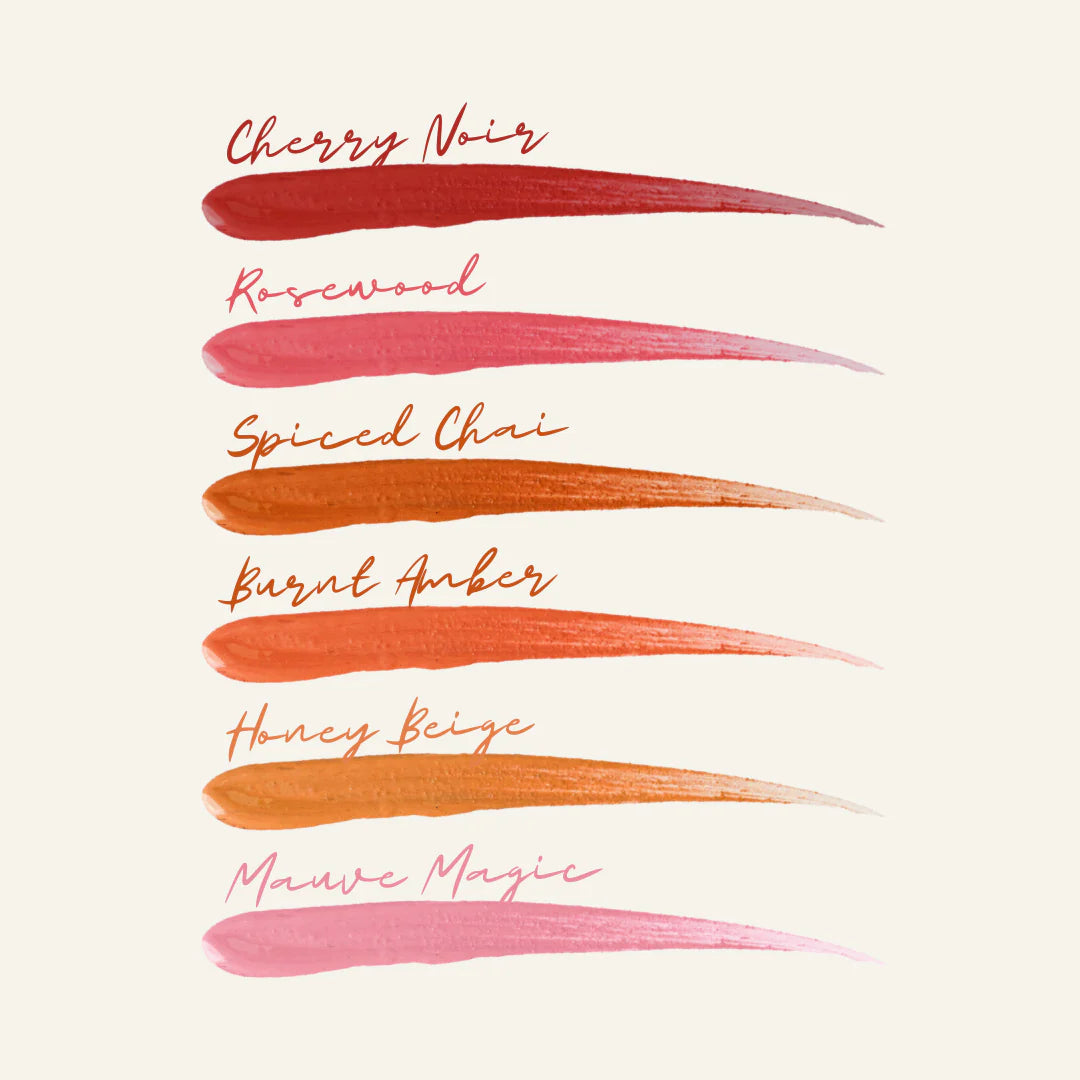 Cherry Noir
Rosewood
Spiced Chai
Burnt Amber
Honey Beige
Mauve Magic